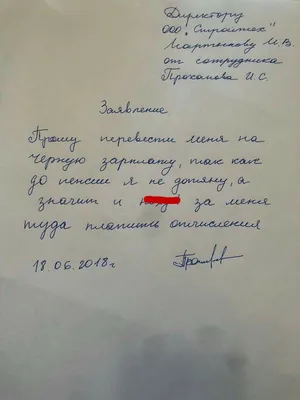 Директору
ООО "Стройтек"
Мартынову И.В.
от сотрудника
Проханова И.С.
Заявление
Прошу перевести меня на
чёрную зарплату, так как
до пенсии я не дотяну, а
значит и за меня
туда платить отчисления
18.06.2018г